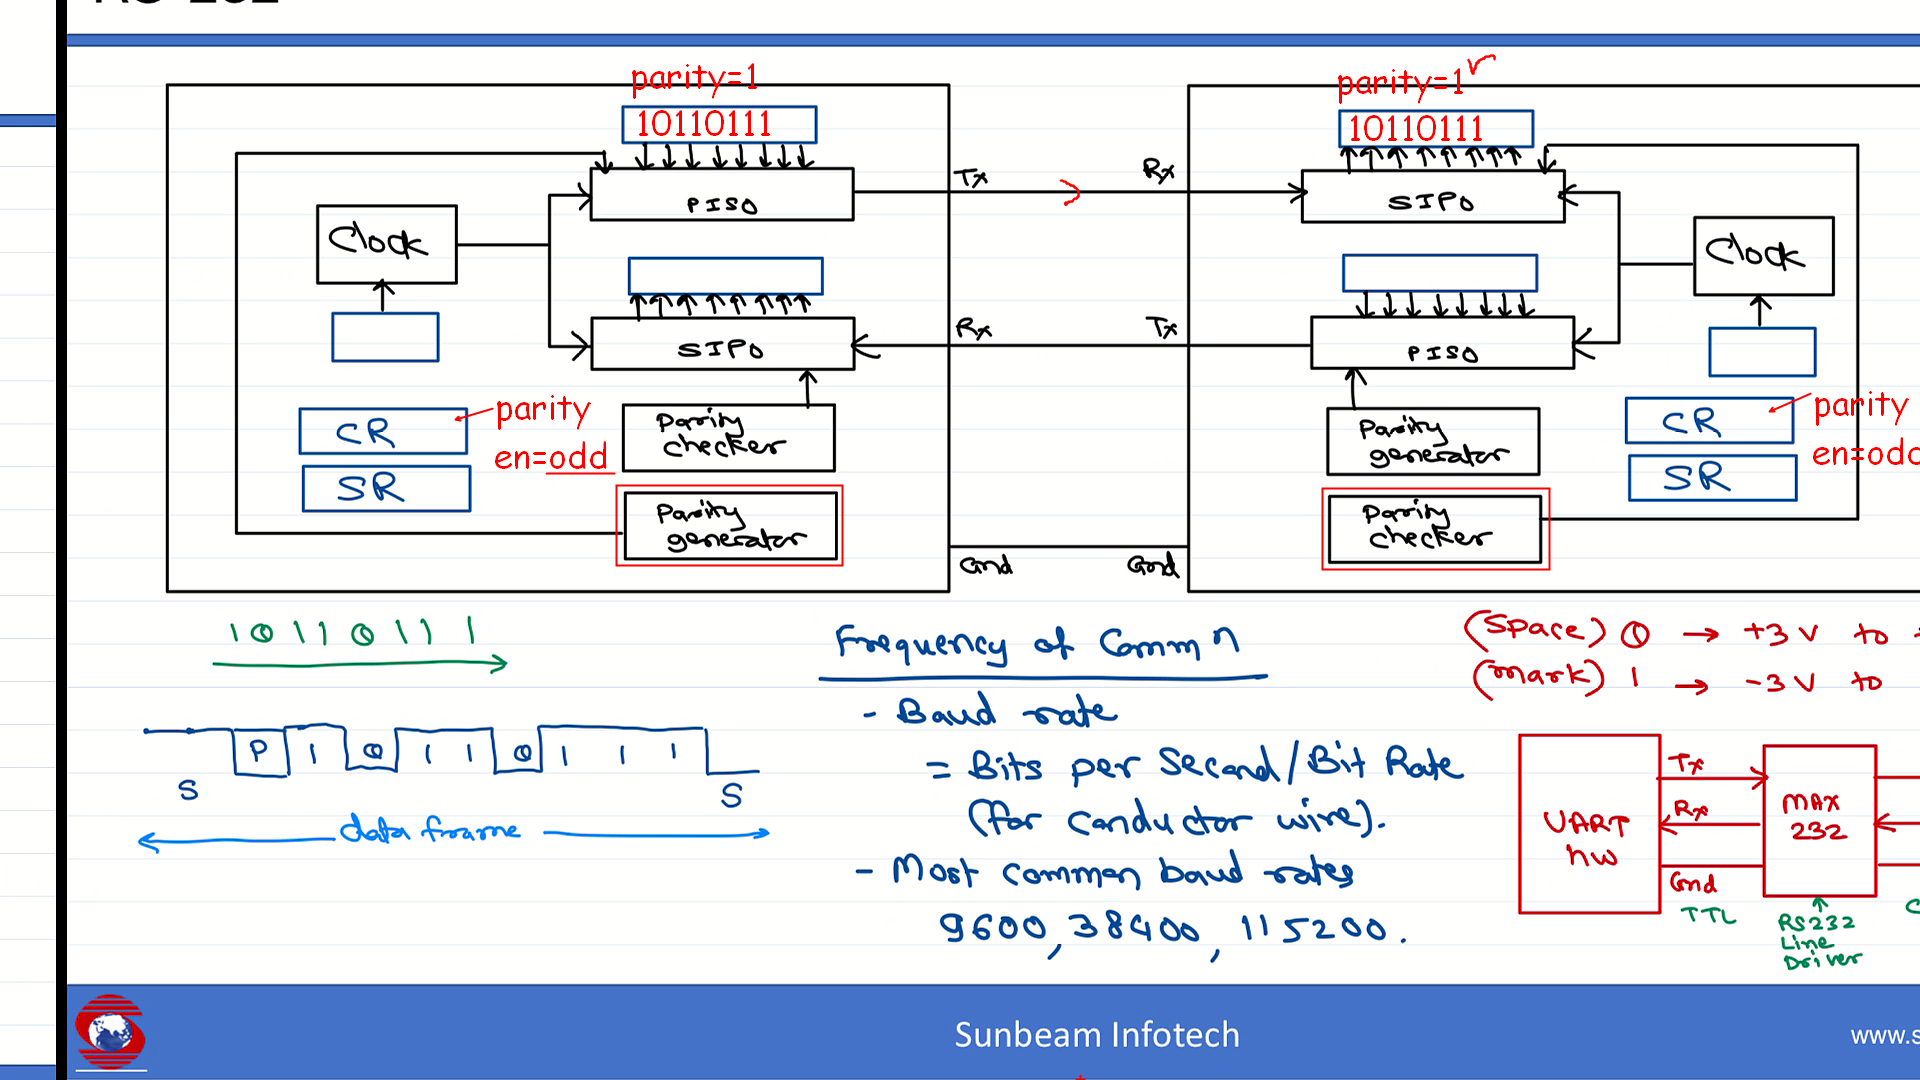 RS-232
parity=1
10110111
PISO
Tx
Clock
SIPO
Rx
CR
SR
parity
en=odd
Parity
checker
Parity
generator
Gnd
parity=1
10110111
Rx
SIPO
Clock
Tx
PISO
CR
SR
parity
en=odd
Parity
generator
Parity
checker
Gnd
1 0 1 1 0 1 1 1
S P 1 0 1 1 0 1 1 1 S
data frame
Frequency of Commn
- Baud rate
= Bits per Second/Bit Rate
(for conductor wire).
- Most common baud rates
9600, 38400, 115200.
(Space) 0 → +3 V to
(mark) 1 → -3 V to
UART
hw
Tx
Rx
Gnd
TTL
MAX
232
RS232
Line
Driver
Sunbeam Infotech
www.s